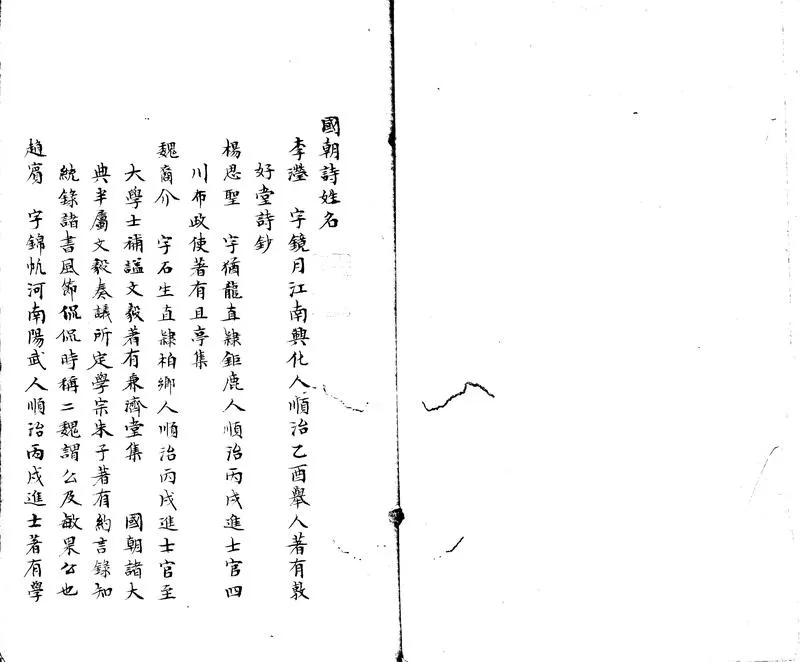 國朝詩姓名
李瀅　字鏡月江南興化人順治乙酉舉人著有敦
好堂詩鈔
楊思聖　字猶龍直隸鉅鹿人順治丙戌進士官四
川布政使著有且亭集
魏裔介　字石生直隸柏鄉人順治丙戌進士官至
大學士補諡文毅著有兼濟堂集　國朝諸大
典半屬文毅奏議所定學宗朱子著有約言錄知
統錄諸書風節侃侃時稱二魏謂公及敏果公也
趙賓　字錦帆河南陽武人順治丙戌進士著有學